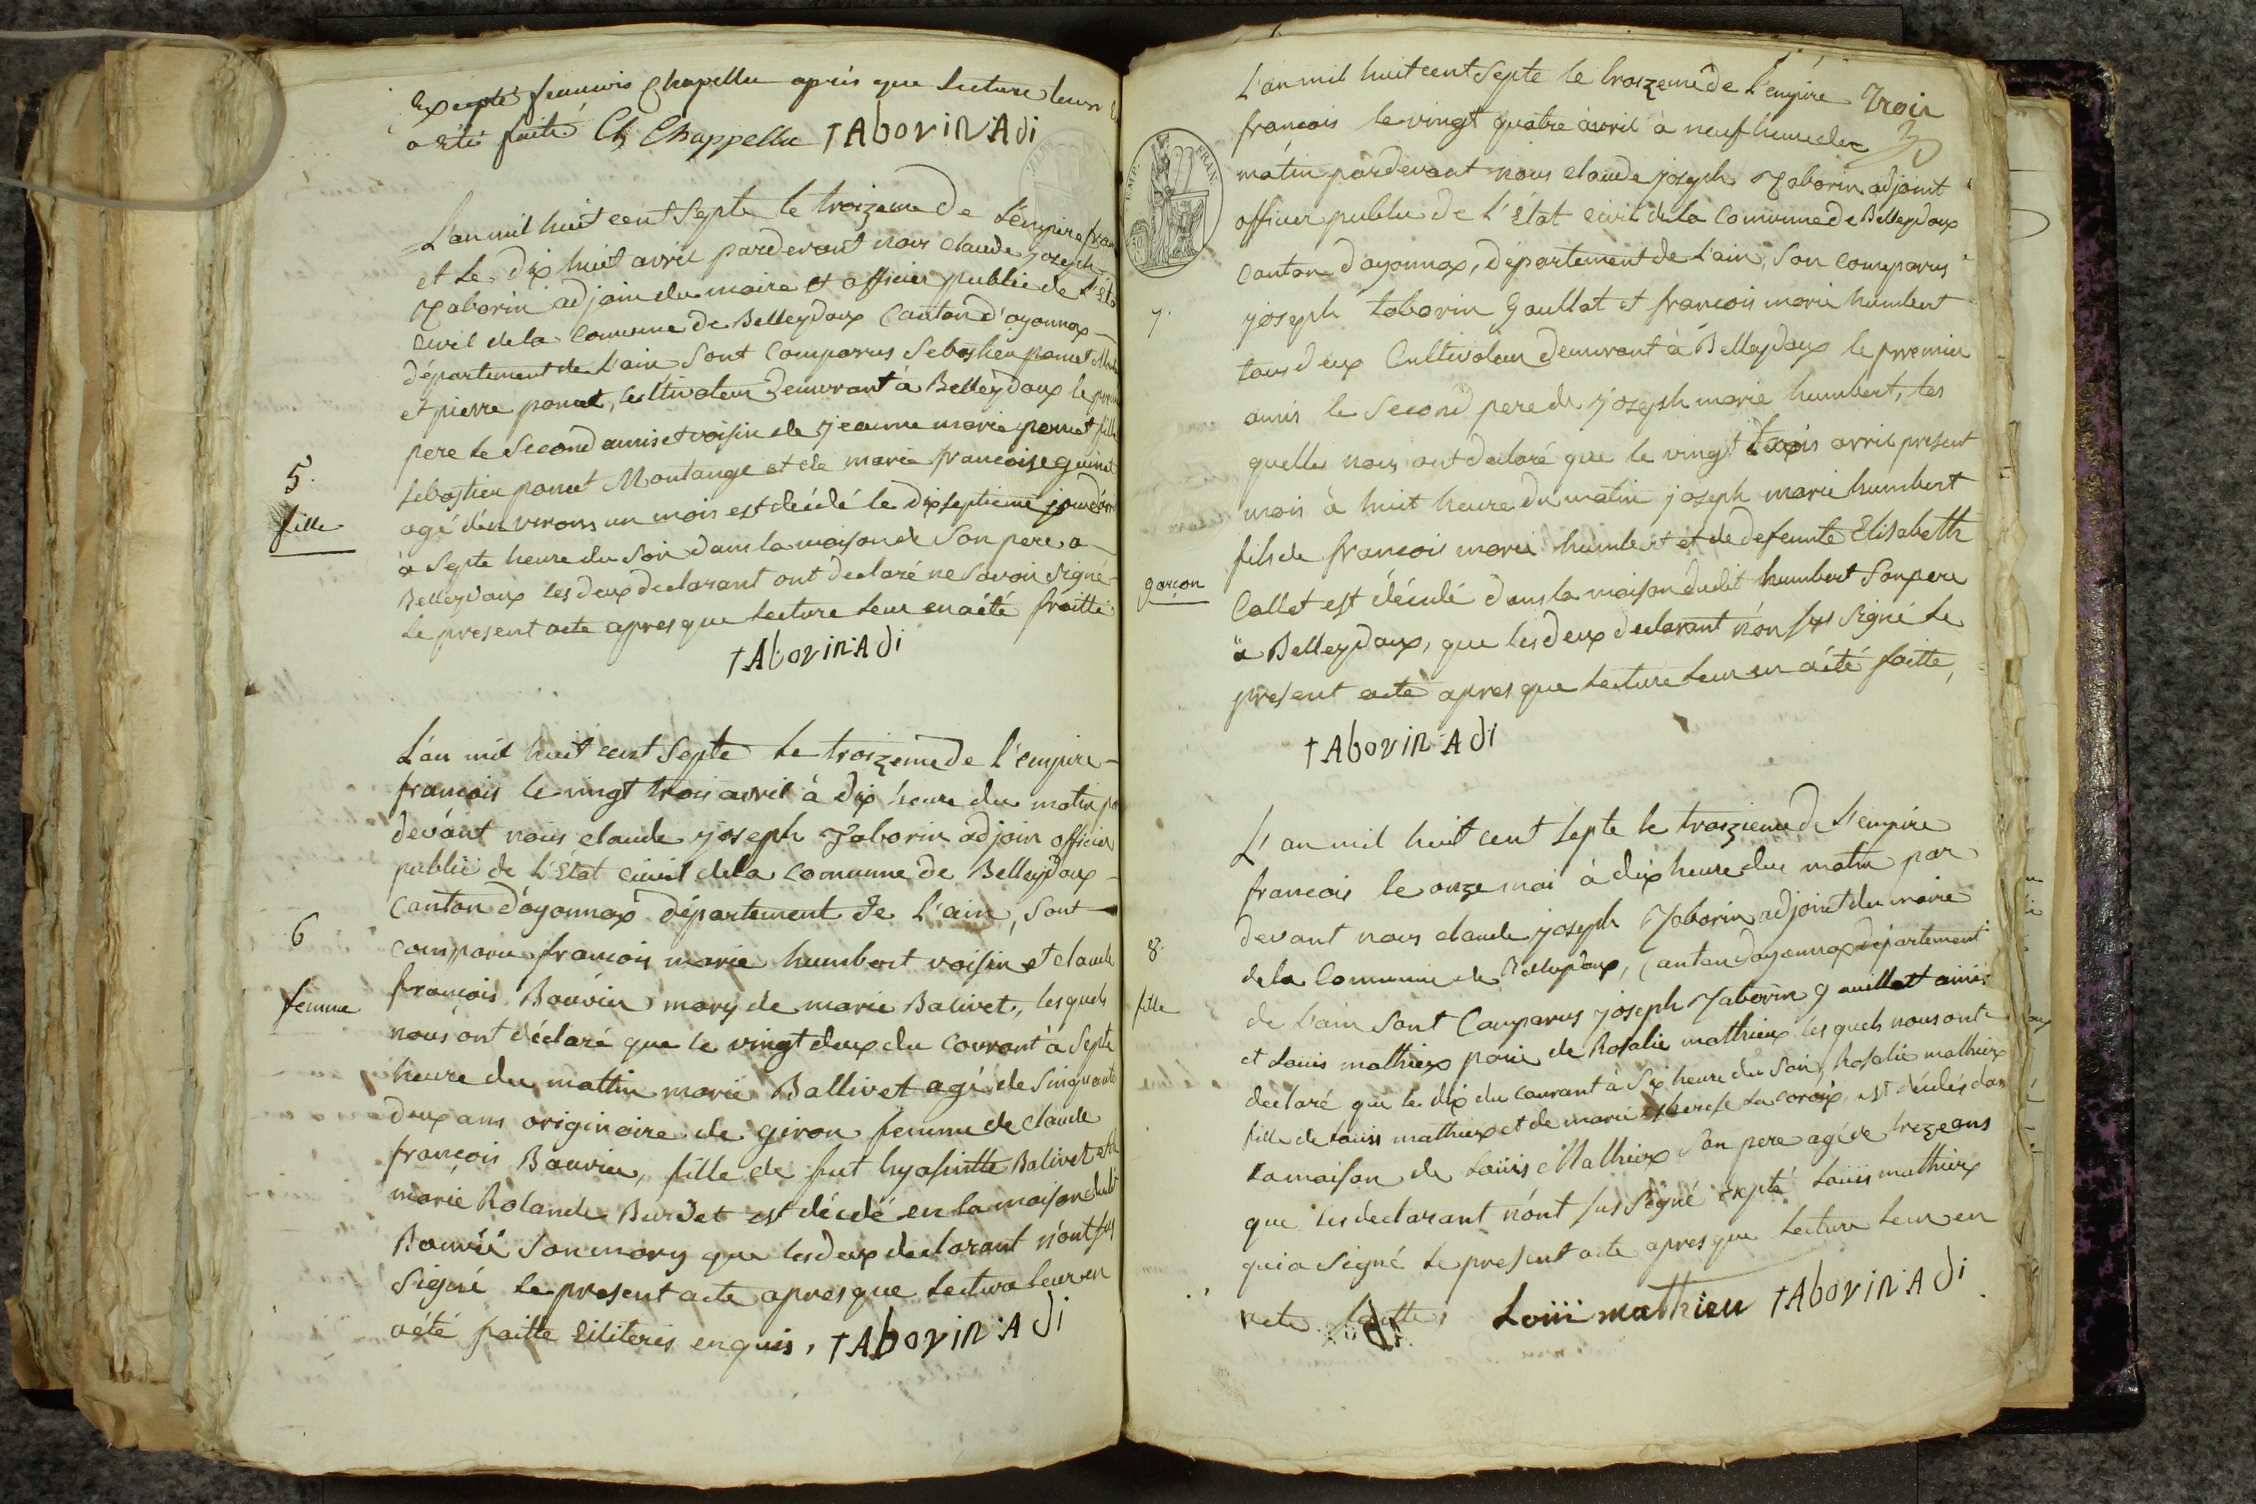 Excepté francois Chapellu aprés que Lecture leur
a été faite Ch Chappellu TAborin Adi
L'an mil huit cent Septe le troizeme De L'empire fran
et Le dix huit avril pardevant nous claude joseph
Taborin adjoin du maire et officier public de L'Eta
civil dela Comune de Belleydoux Canton d'oyonnax
département de L'ain Sont Comparus Sebastien ponset
et pierre ponset, Cultivateur Demeurant à Belleydoux le prem
5.
pere le Second amis et voisin de jeanne marie ponset fille
Sebastien ponset Montange et de marie francoise guinet
fille
agé d'en virons un mois est décédé le Dix septieme jour d'avr
à Septe heure du Soir dans la maison de Son pere a
Belleydoux les deux declarant ont declaré ne Savoir Signé
Le present acte apres que Lecture Leur en a été faitte
TAborin Adi
L'an mil huit cent Septe Le troizeme de L'empire
francois le vingt trois avril à dix heure du matin par
devant nous claude joseph Taborin adjoin officier
public de L'Etat civil dela Comunne de Belleydoux
Canton d'oyonnax département de L'ain, Sont
6
comparu francois marie humbert voisin et claude
femme
françois Bouvier mary de marie Balivet, lesquels
nous ont déclaré que le vingt deux du Courant à Septe
heure du mattin marie Ballivet agé de Sinquante
deux ans originaire de giron femme de claude
francois Bouvier, fille de fut hyasintte Balivet et de
marie Rolande Burdet est décédé en la maison dudit
Bouvié Son mary que les deux declarant n'ont sus
Signé le present acte apres que Lectura leur en
a été faitte Eiliteris enquis, TAborin Adi
L'an mil huit cent Septe le troizeme de L'empire Trois
3
francois le vingt quatre avril à neuf heure du
matin pardevant nous claude joseph Taborin adjoint
officier public de L'Etat civil de la Comunne de Belleydoux
Canton d'oyonnax, Département de L'ain, Son comparus
7.
joseph taborin Goullat et francois marie humbert
tous deux Cultivateur demeurant à Belleydoux le premier
amis le Second pere de joseph marie humbert, les
quelles nous ont declaré que le vingt trois avril present
mois à huit heure du matin joseph marie humbert
fils de francois marie humbert et de defeunte Elisabeth
garçon
Callet est décédé dans la maison dudit humbert Son pere
a Belleydoux, que les deux declarant n'on sus Signé Le
present acte apres que Lecture Leur en a été faitte,
TAborin Adi
L'an mil huit cent Septe le troizieme de L'empire
francois le onze mai à dix heure du matin par
devant nous claude joseph Taborin adjoint du maire
8.
de la Comunne de Belleydoux, Canton d'oyonnax département
fille
de L'ain Sont Comparus joseph Taborin gouellatt amis
et Louis mathieux paire de Rosalie mathieux les quels nous ont
declaré que le dix du courant à Six heure du Soir, Rosalie mathieux
fille de Louis mathieux et de marie therese La coroix est décédés dan
La maison de Loüis Mathieux Son pere agé de treze ans
que les declarant n'ont sus Signé exepté Loüis mathieux
qui a Signé Le present acte apres que Lecture Leur en
aete faitte, Loüi mathieu TAborin Adi